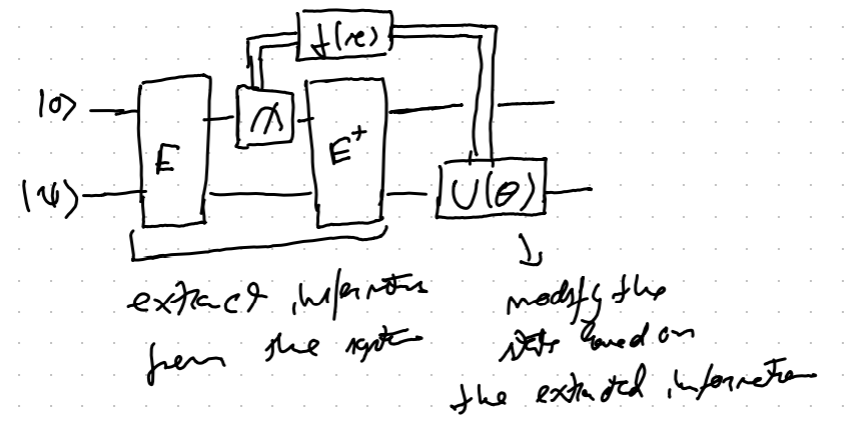 f(x)
|0⟩
E
E†
|ψ⟩
U(θ)
extract information
from the system
modify the
state based on
the extracted information